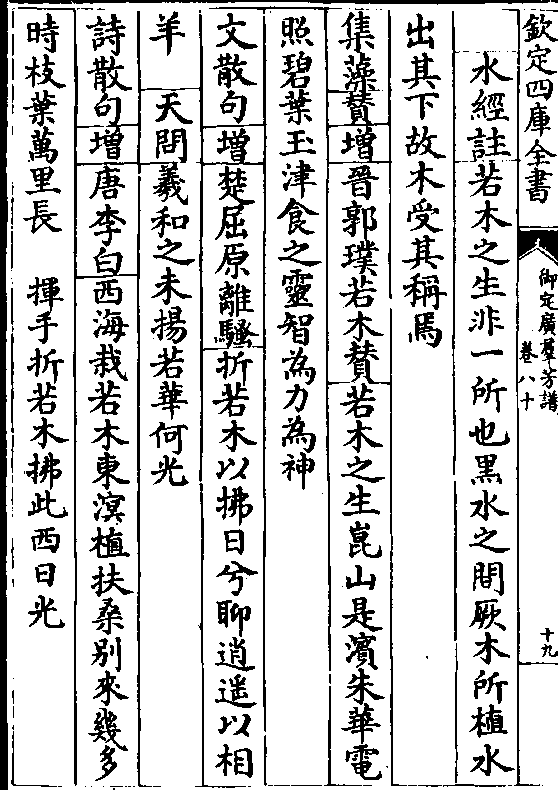 欽定四庫全書
御定廣羣芳譜
卷八十
十九
水經註若木之生非一所也黒水之間厥木所植水
出其下故木受其稱焉
集藻贊增晉郭璞若木贊若木之生崑山是濱朱華電
照碧葉玉津食之靈智為力為神
文散句增楚屈原離騷折若木以拂日兮聊逍遥以相
羊　天問羲和之未揚若華何光
詩散句增唐李白西海栽若木東溟植扶桑别來幾多
時枝葉萬里長　揮手折若木拂此西日光